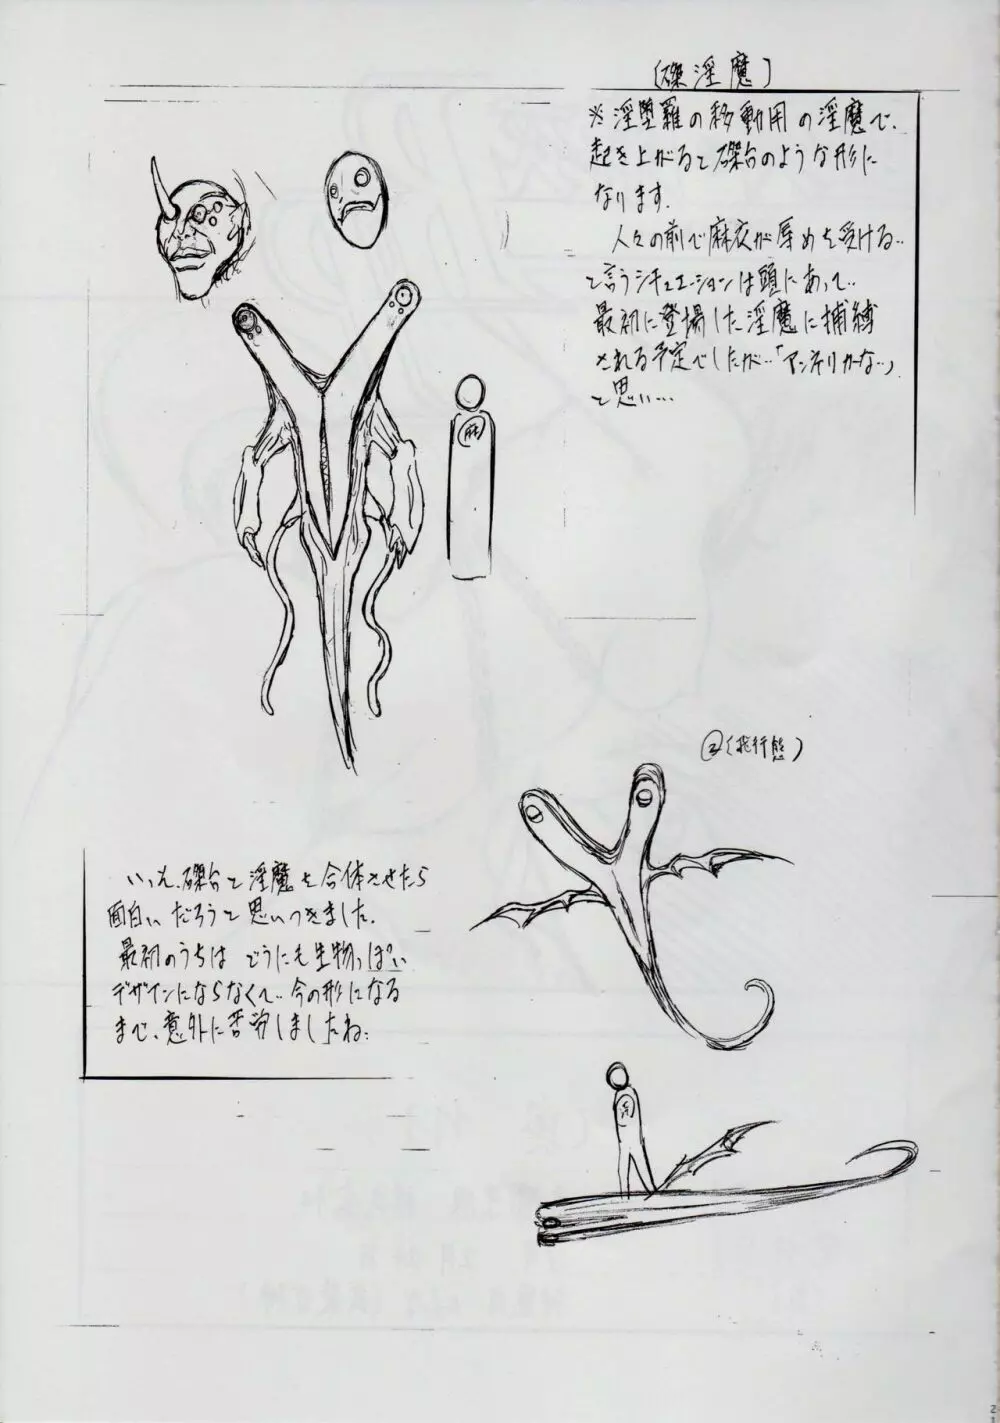 (磔淫魔)
※淫堕羅の移動用の淫魔で、
起き上がると磔台のような形に
なります。
人々の前で麻衣が辱めを受ける‥
と言うシチュエーションは頭にあって‥
最初に登場した淫魔に捕縛
される予定でしたが‥「アンマリかな‥」
と思い…
麻
②(飛行態)
いっそ、磔台と淫魔を合体させたら
面白いだろうと思いつきました。
最初のうちは どうにも生物っぽい
デザインにならなくて‥今の形になる
まで、意外に苦労しましたね‥